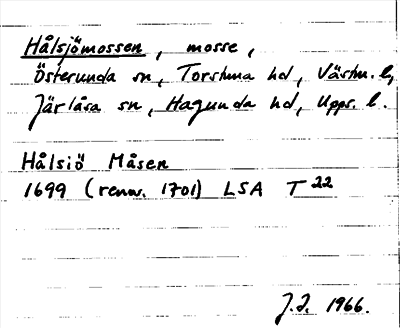 Hålsjömossen, mosse,
Österunda sn, Torstuna hd, Västm. l,
Järlåsa sn, Hagunda hd, Upps. l.
Hålsiö Måsen
1699 (renov. 1701) LSA T 22
J.I. 1966.